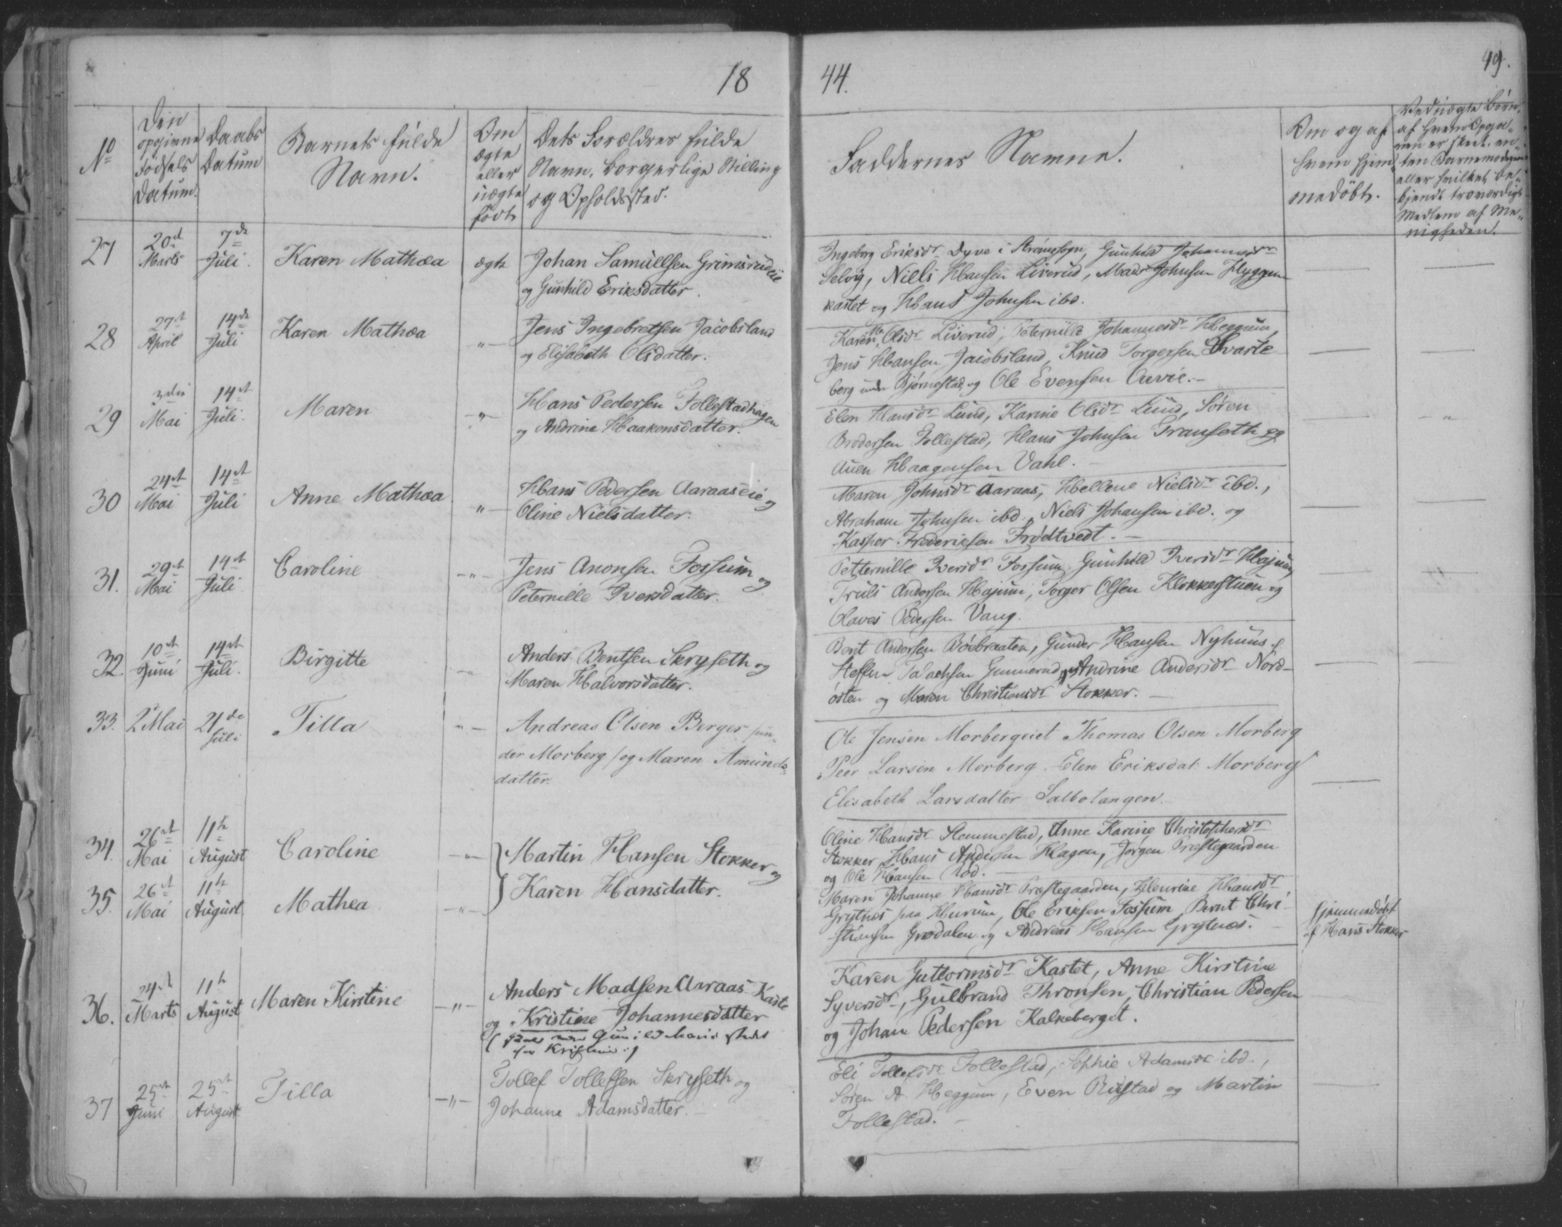 18 44.
49.
No
Den opgivne Fødsels Datum.
Daabs Datum
Barnets fulde Navn.
Om ægte eller uægte født
Dets Forældres fulde Navn, borgerlige Stilling og Opholdssted.
Faddernes Navne.
Om og af hvem hjemmedøbt.
27
20d Marts
7de Juli
Karen Mathæa
ægte
Johan Samuelsen Grimsrudeie
og Gunhild Eriksdatter.
Ingeborg Eriksdr Dyve i Strømsogn, Gunhild Johannesdr
Selvig, Niels Hansen Liverud, Mads Johnsen Hyggen
kastet og Hans Johnsen ibd.
28
27t April
14de Juli
Karen Mathæa
"
Jens Ingebretsen Jacobsland
og Elisabeth Olsdatter.
Karen Olsdr Liverud, Peternille Johannesdr Heggum,
Jens Hansen Jacobsland, Knud Torgersen Svarte
berg under Bjørnestad og Ole Evensen Auvie.
29
3die Mai
14t Juli.
Maren
"
Hans Pedersen Follestadhagen
og Andrine Haakensdatter.
Elen Hansdr Lund, Karine Olsdr Lund, Søren
Brodersen Follestad, Hans Johnsen Transeth og
Auen Haagensen Vahl.
"
30
24t Mai
14t Juli
Anne Mathæa
"
Hans Pedersen Aaraaseie og
Oline Nielsdatter.
Maren Johnsdr Aaraas, Hellene Nielsdr ibd.,
Abraham Johnsen ibd, Niels Johansen ibd. og
Kasper Fredericksen Frødtvedt.
31.
29t Mai
14t Juli
Caroline
"
Jens Anonsen Fossum og
Peternille Iversdatter.
Petternille Iversdr Fossum, Gunhild Iversdr Hajum,
Truls Andersen Hajum, Torger Olsen Klokkerstuen og
Olaves Pedersen Vang.
32.
10t Juni
14t Juli.
Birgitte
Anders Bentsen Skrysseth og
Maren Halvorsdatter.
Bent Andersen Bøibraaten, Gunder Hansen Nyhuus,
Steffen Gunnerud, Andrine Andersdr Nord-
østen og Maren Christiansdr Stokker.
33.
2 Mai
21de Juli
Tilla
Andreas Olsen Berger /un-
der Morberg/ og Maren Amunds-
datter.
Ole Jensen Morbergeiet Thomas Olsen Morberg
Peer Larsen Morberg. Elen Eriksdat. Morberg
Elisabeth Larsdatter Saltbolangen.
34.
26t Mai
11te August
Caroline
Martin Hansen Stokker og
Karen Hansdatter.
Oline Hansdr Slemmestad, Anne Karine Christophersdr
Stokker Hans Andersen Hagen, Jørgen Præstegaarden
og Ole Hansen Rød.
35.
26t Mai
11te August
Mathea
Maren Johanne Hansdr Præstegaarden, Henrine Hansdr
Grytnes paa Hurum, Ole Eriksen Fossum, Bernt Chri-
stiansen Grødalen og Andreas Hansen Grytnæs.
Hjemmedøbt
af Hans Stokker
36.
24d Marts
11te August
Maren Kirstine
"
Anders Madsen Aaraas Kaste
og Kristine Johannesdatter
(skal være Gunild Marie istedet
for Kristine.)
Karen Guttormsdr Kastet, Anne Kirstine
Syversdr, Gulbrand Thronsen, Christian Pedersen
og Johan Pedersen Kalkeberget.
37
25t Juni
25t August
Tilla
"
Tollef Tollefsen Skrysseth og
Johanne Adamsdatter.
Eli Tollefsdr Follestad, Sophie Adamsdr ibd.,
Søren A Heggum, Even Rustad og Martin
Follestad.